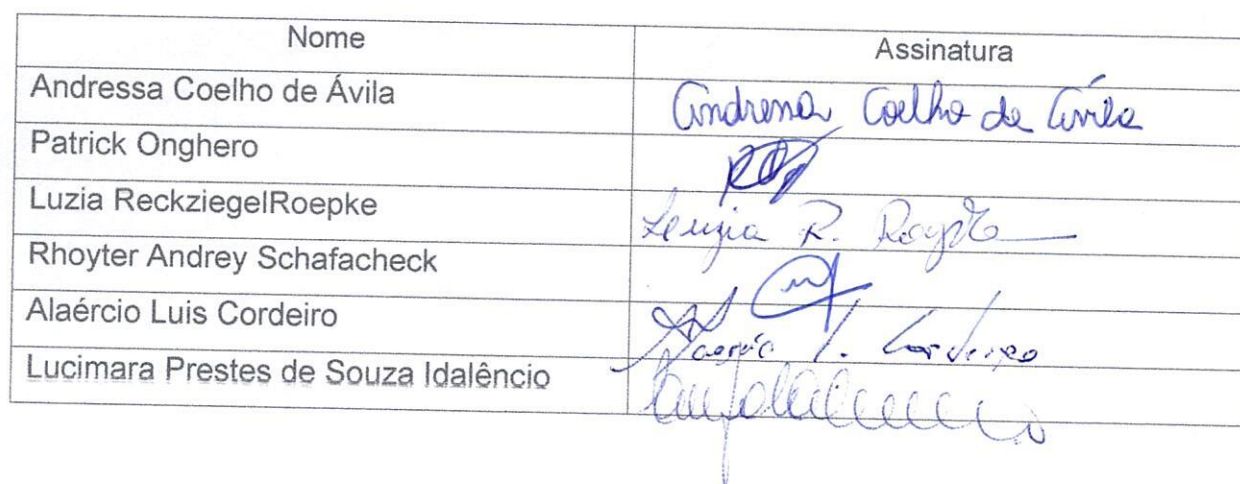 Nome Assinatura
Andressa Coelho de Ávila Andressa Coelho de Ávila
Patrick Onghero
Luzia ReckziegelRoepke Luzia R. Roepke
Rhoyter Andrey Schafacheck
Alaércio Luis Cordeiro Alaércio L. Cordeiro
Lucimara Prestes de Souza Idalêncio